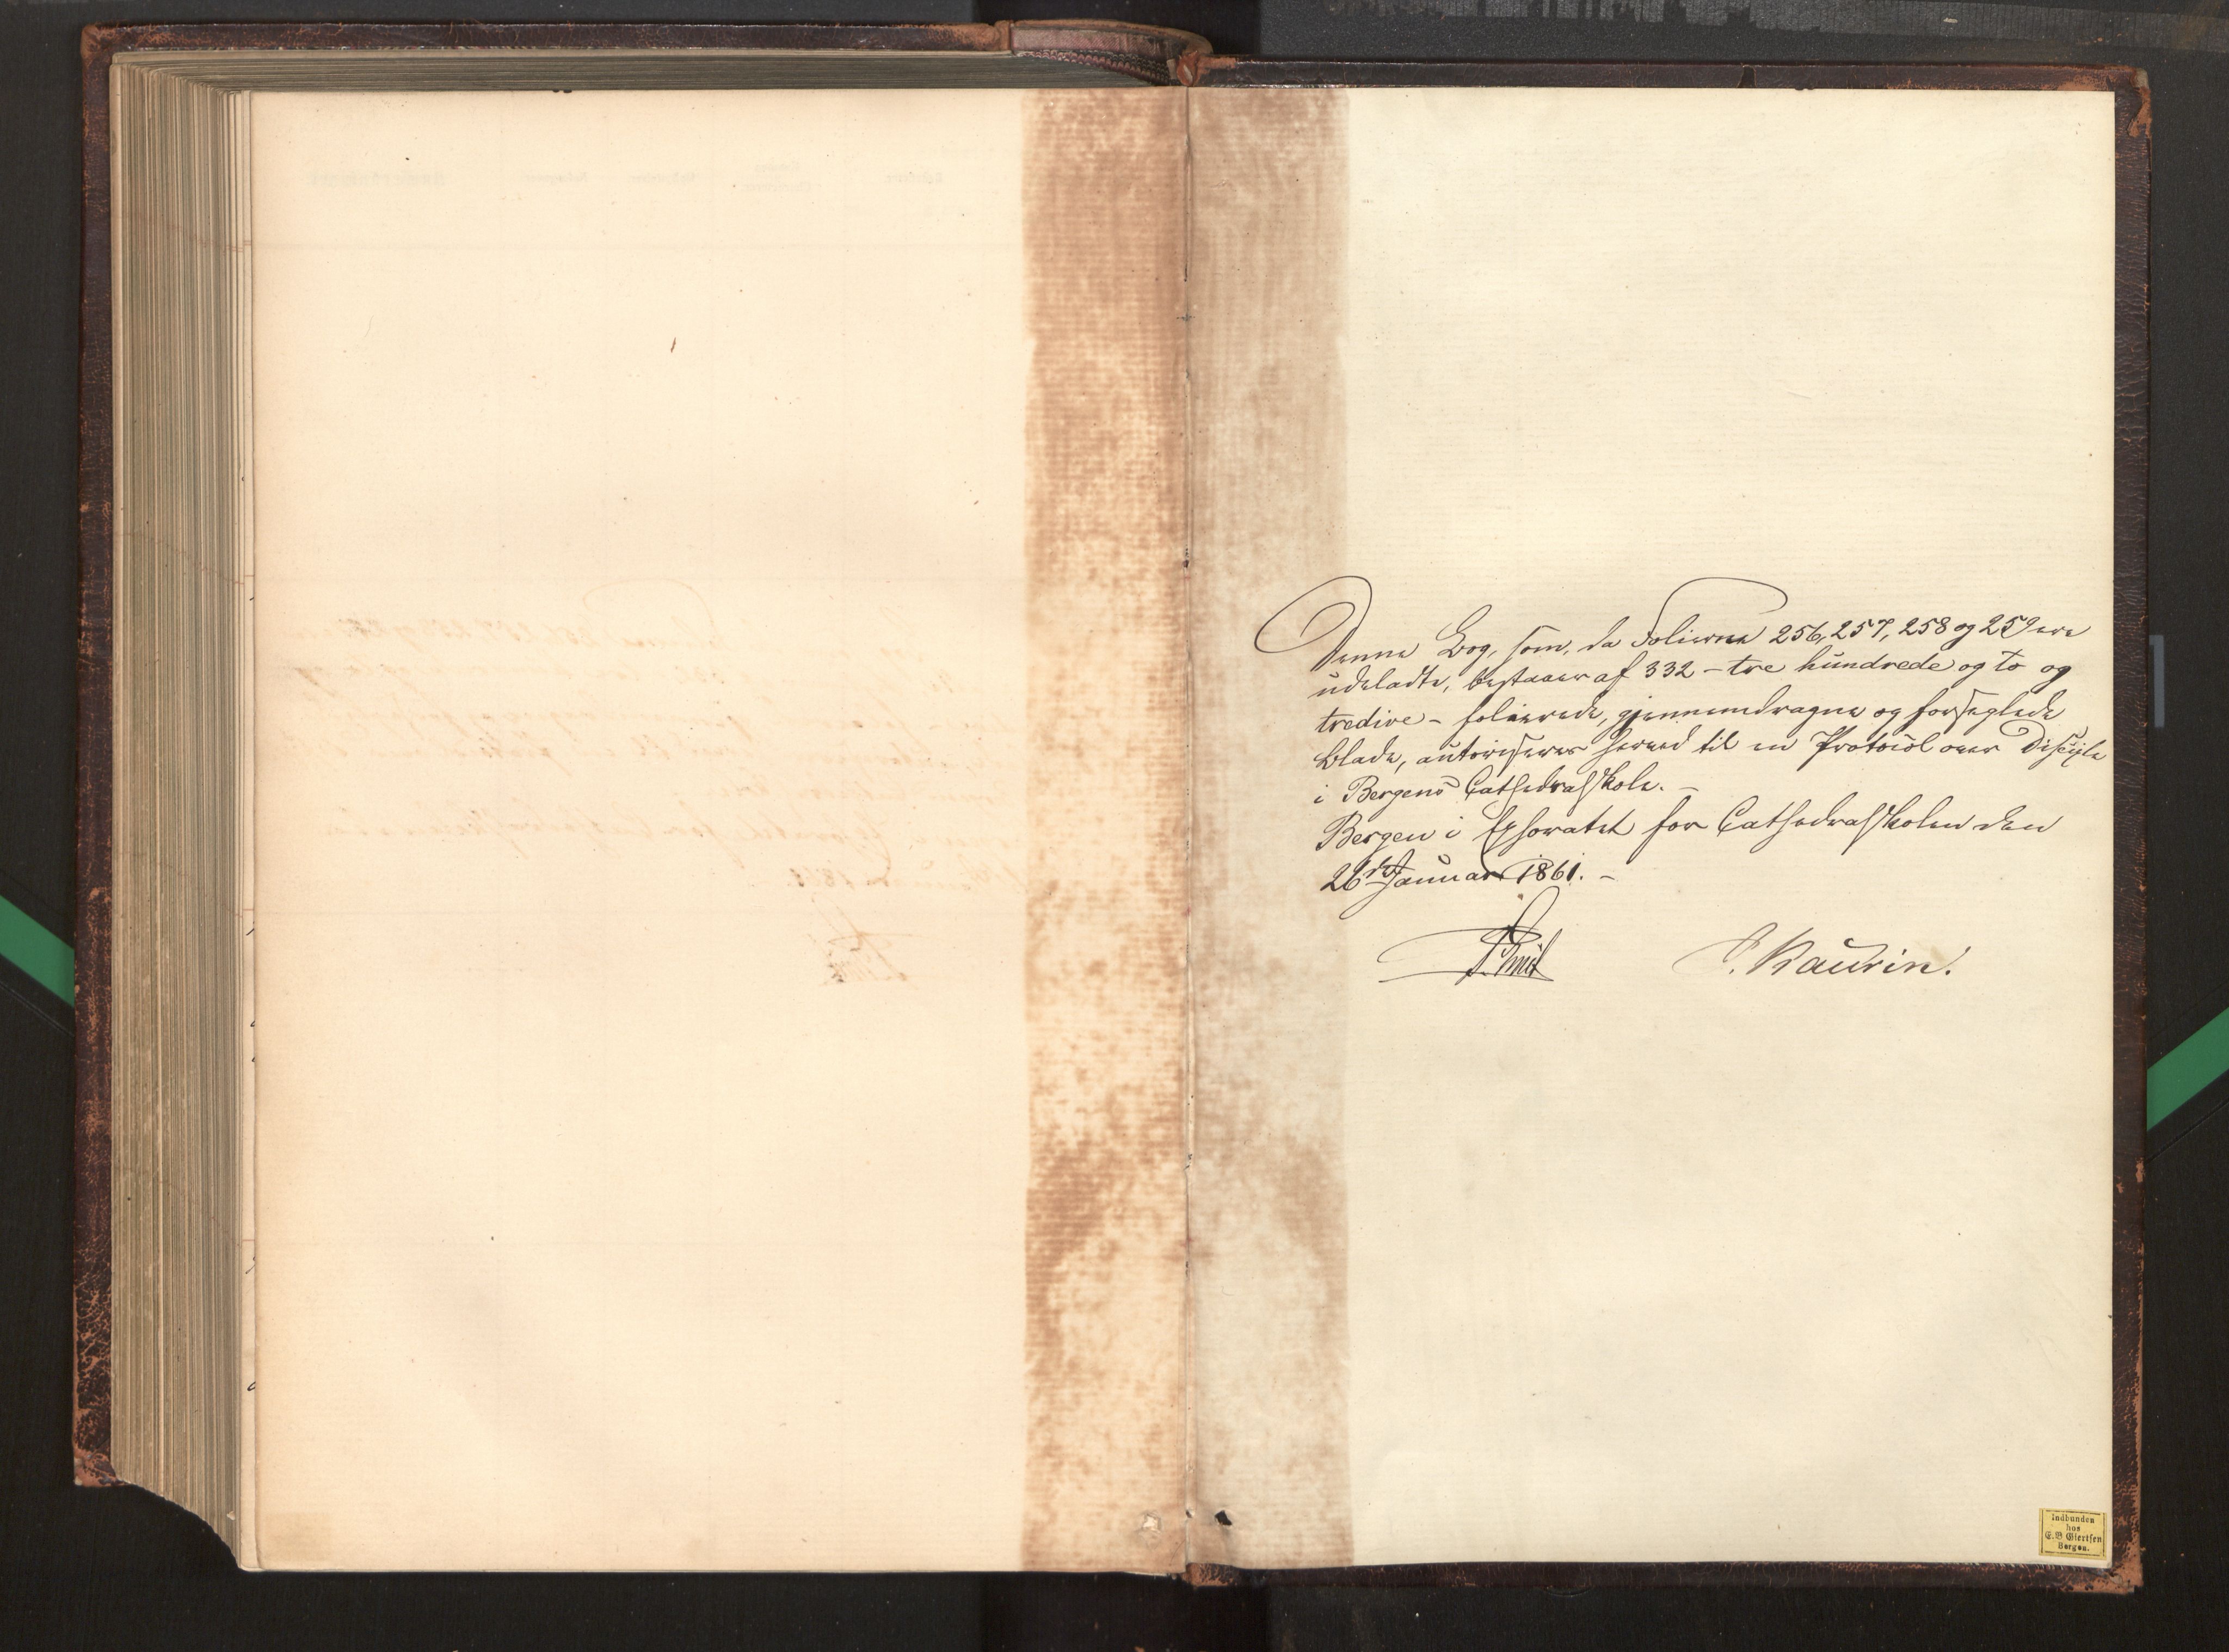 Denne Bog, som, da Folierne 256, 257, 258 og 259 ere
udeladte, bestaaer af 332 - tre hundrede og to og
tredive - folierede, gjennemdragne og forseglede
Blade, autoriseres herved til en Protocol over Disciple
i Bergens Cathedralskole. -
Bergen i Ephoratet for Cathedralskolen den
26de Januar 1861. -
Kaurin.
Indbunden
hos
E. B Giertsen
Bergen.